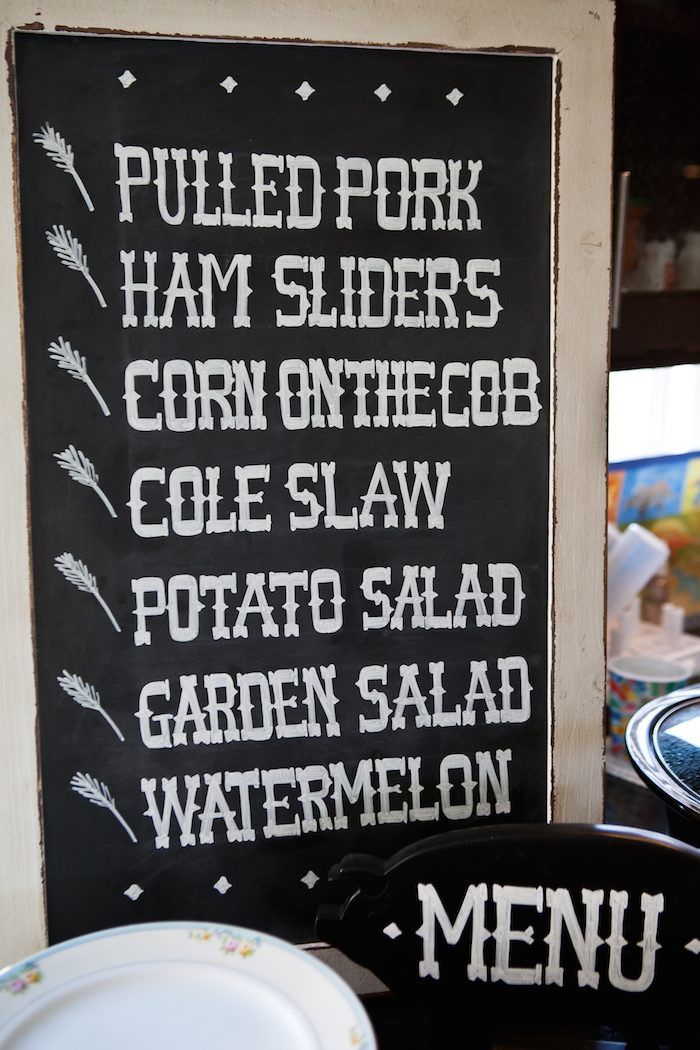 PULLED PORK
HAM SLIDERS
CORN ON THE COB
COLE SLAW
POTATO SALAD
GARDEN SALAD
WATERMELON
MENU